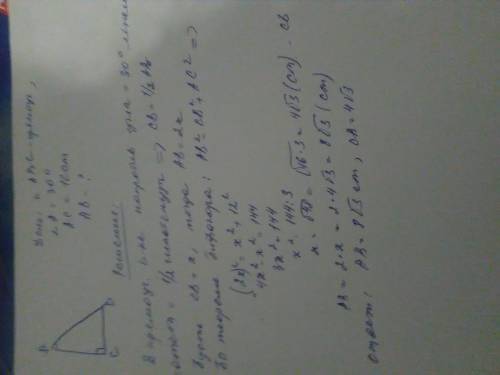 Дано: △ ABC - прямоуг,
∠A = 30°
AC = 12 cm
AB = ?
A
B
C
Решение:
В прямоуг. напротив угла = 30°
= 1/2 гипотенузы => CB = 1/2 AB
Пусть CB = x, тогда AB = 2x
По теореме Пифагора: AB² = CB² + AC² =>
(2x)² = x² + 12²
4x² - x² = 144
3x² = 144
x² = 144 : 3
x = √48 = √16·3 = 4√3 (cm) - CB
AB = 2·x = 2·4√3 = 8√3 (cm)
Ответ: AB = 8√3 cm, CB = 4√3